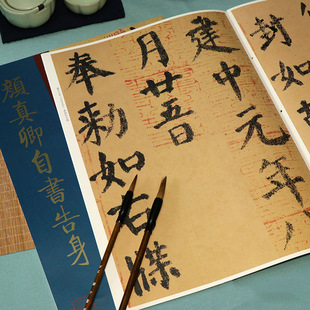 顔真卿自書告身
封如
建中元年八
月廿五日
奉勅如右牒